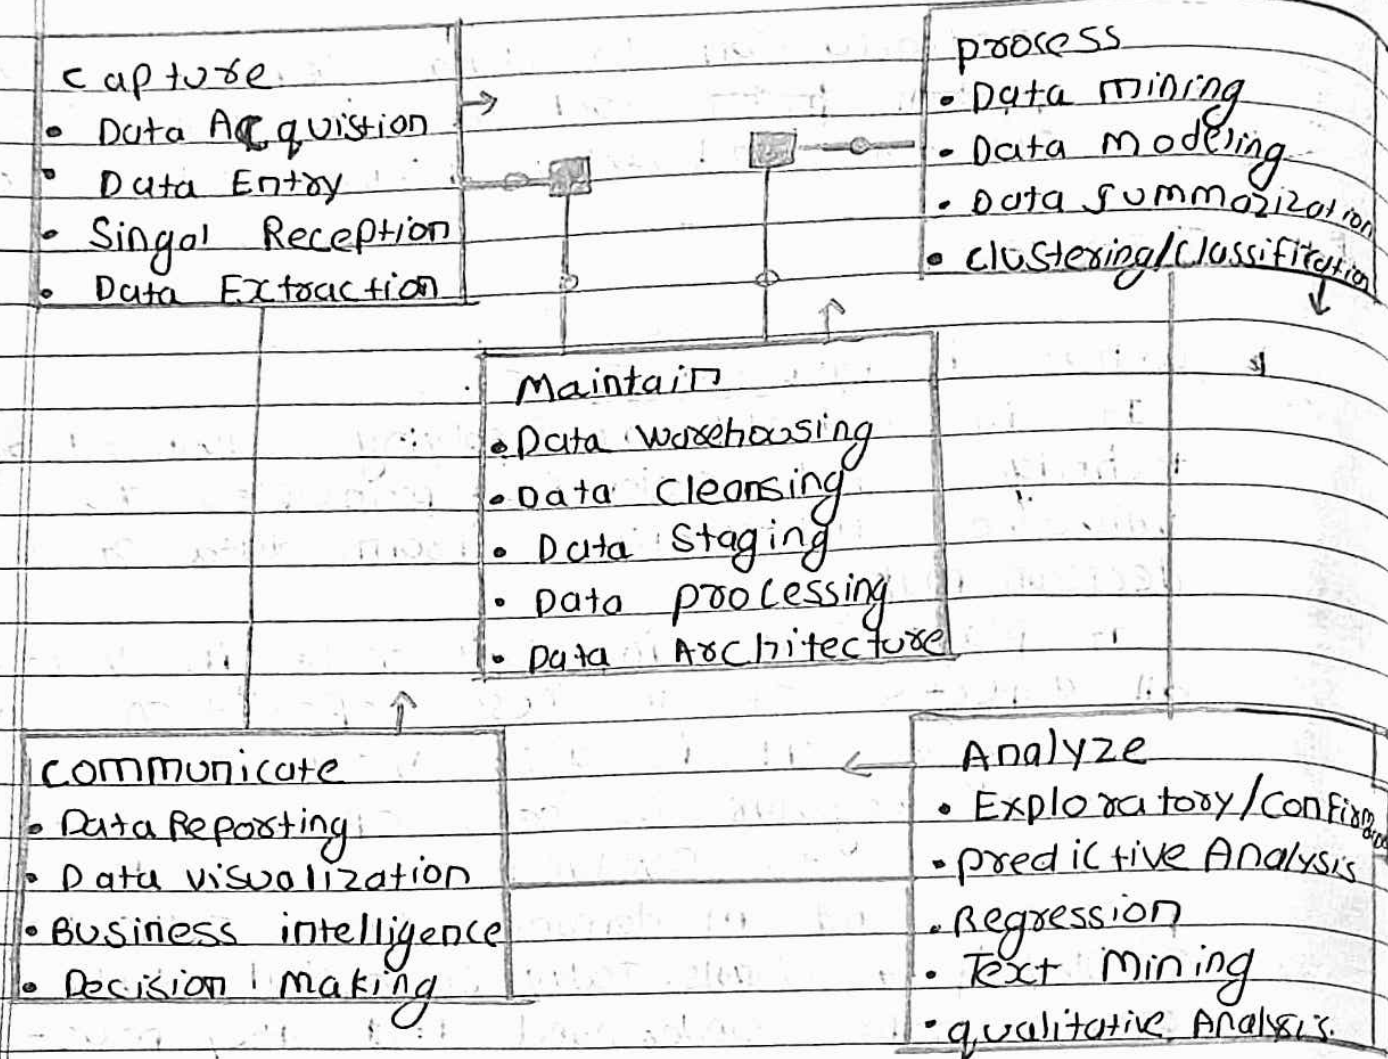 Capture
• Data Acquistion
• Data Entry
• Singal Reception
• Data Extraction
process
• Data mining
• Data Modeling
• Data summarization
• clustering/Classification
Maintain
• Data warehousing
• Data cleansing
• Data Staging
• Data processing
• Data Architecture
communicate
• Data Reporting
• Data visualization
• Business intelligence
• Decision Making
Analyze
• Exploratory/
• predictive Analysis
• Regression
• Text Mining
• qualitative Analysis.